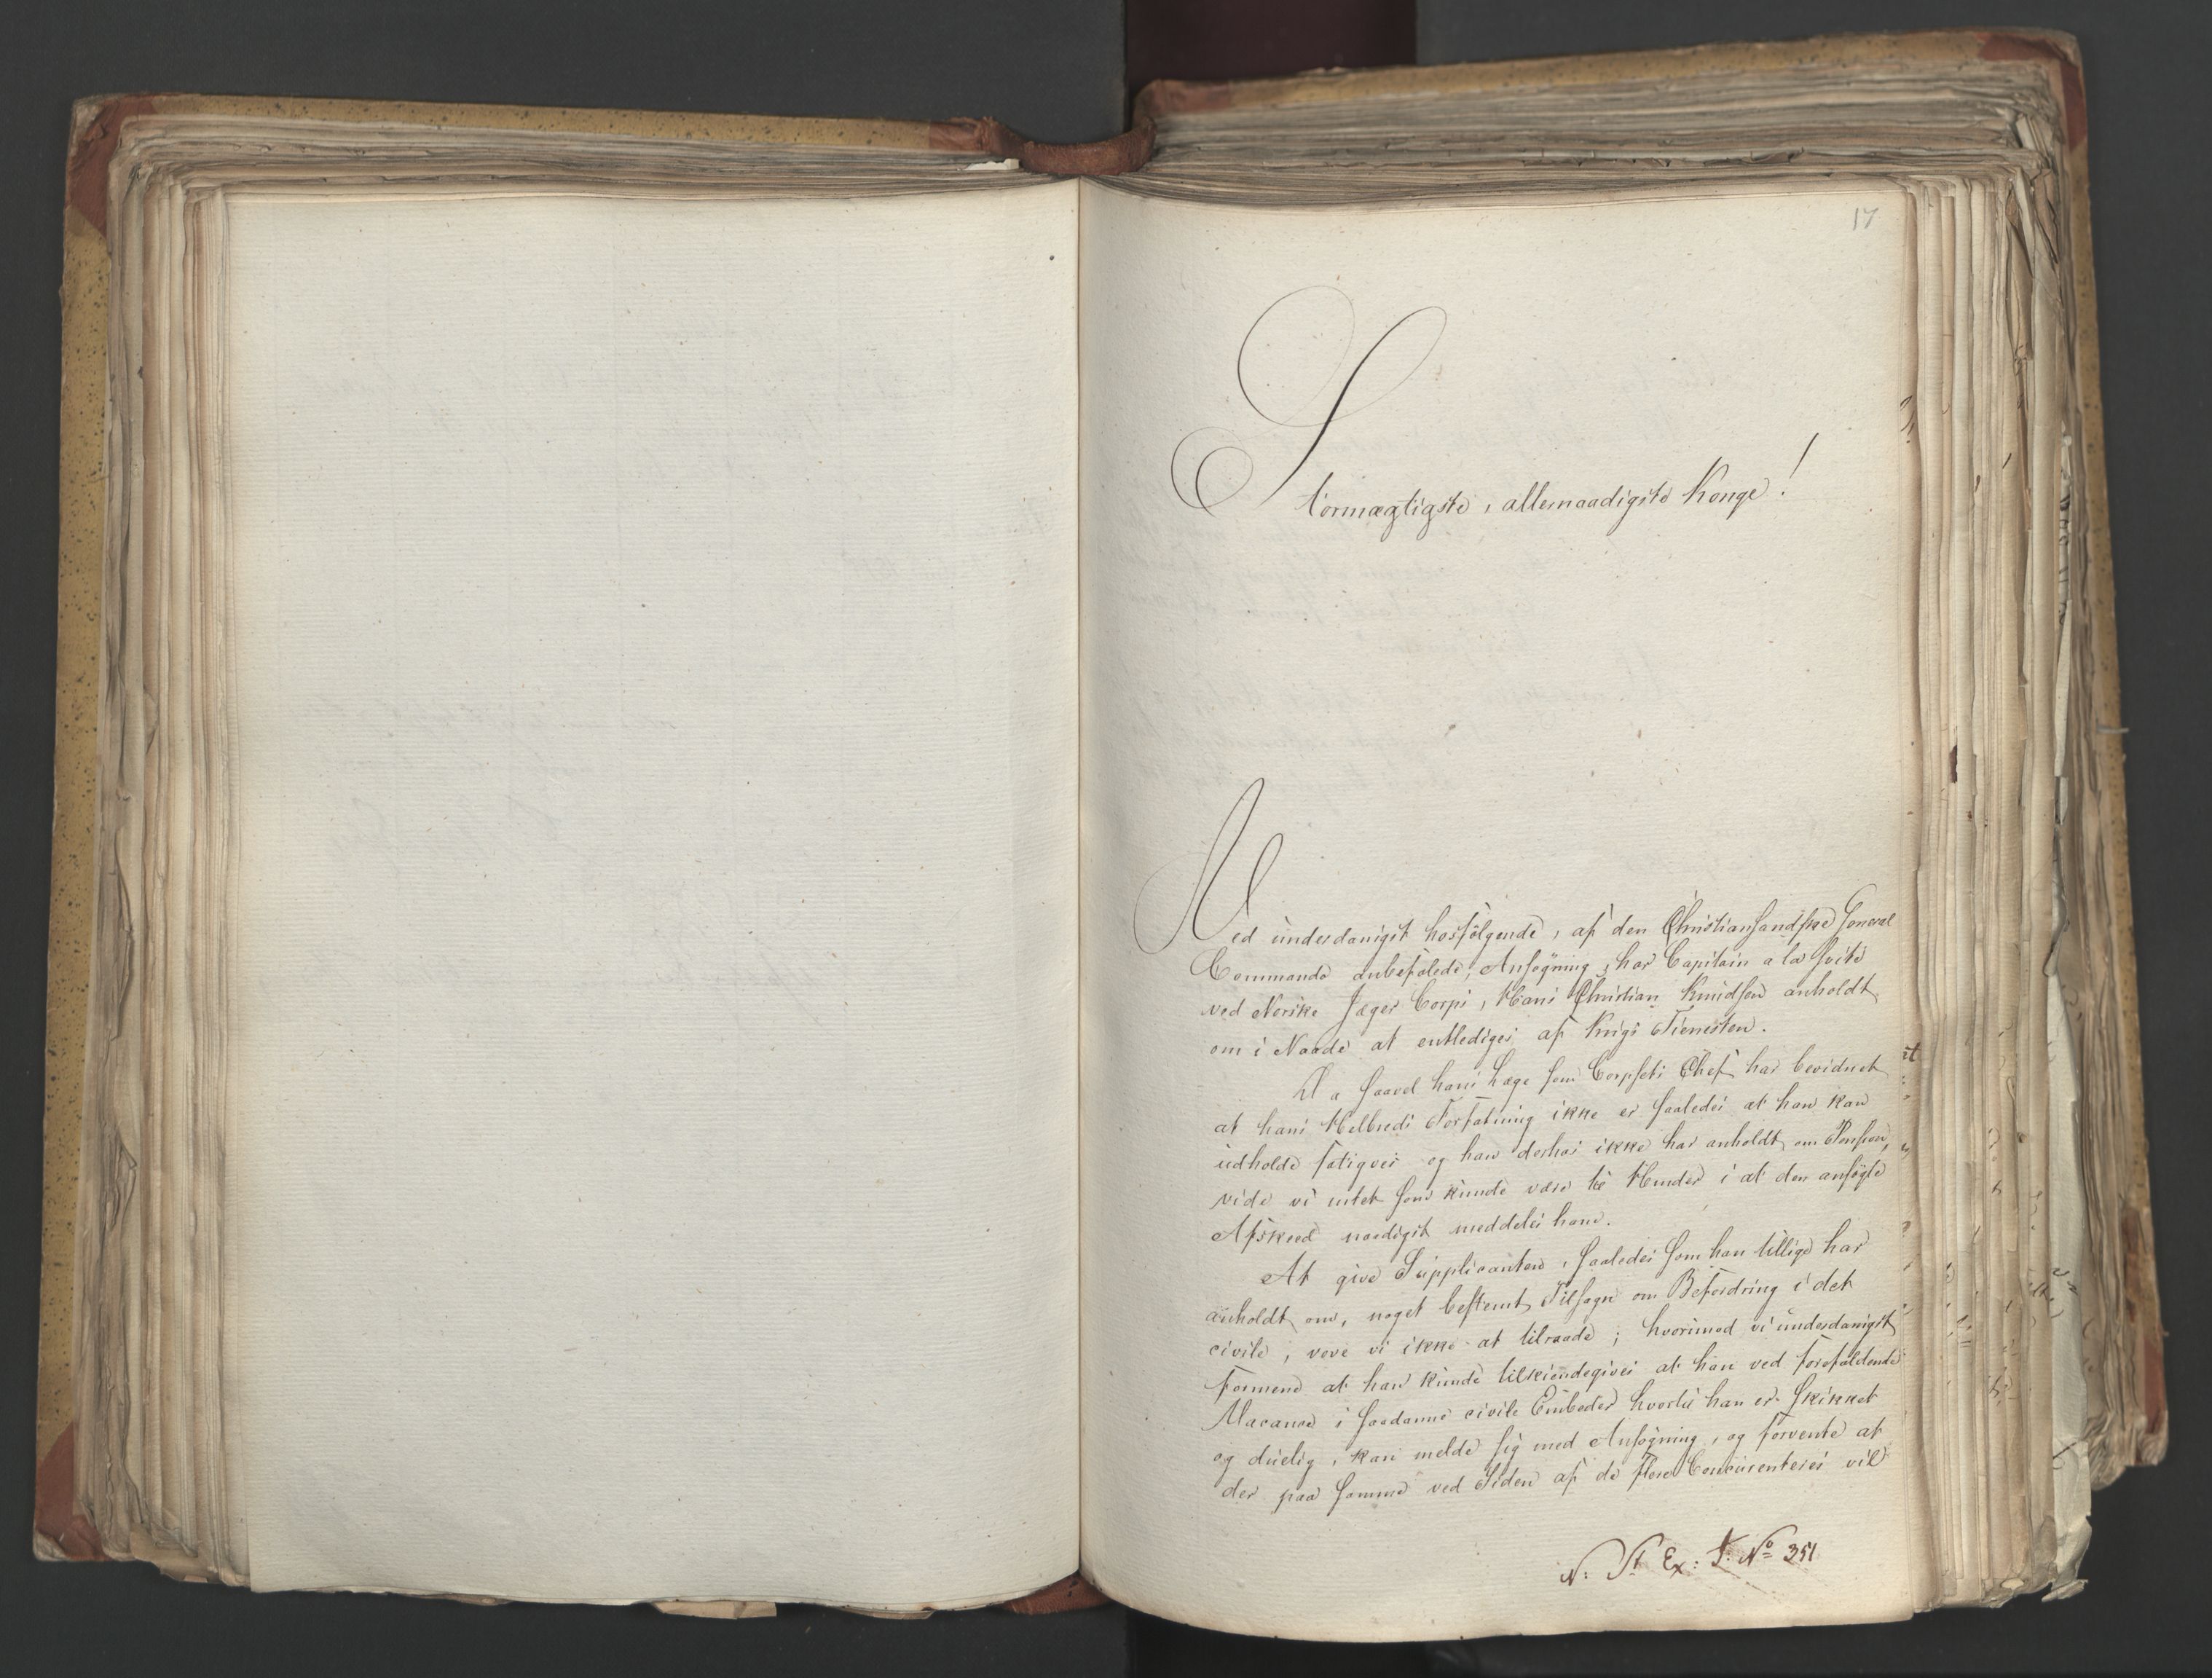 17
Stormægtigste, allernaadigste Konge!
Ved underdanigst hosfølgende, af den Christiansandske General
Commando anbefalede, Ansøgning, har Capitain a la Suite
ved Norske Jæger Corps, Hans Christian Knudsen anholdt
om i Naade at entlediges af Krigs Tienesten.
Da saavel hans Læge som Corpsets Chef har bevidnet
at hans Helbreds Forfatning ikke er saaledes at han kan
udholde fatigver og han derhos ikke har anholdt om Pension,
vide vi intet som kunde være til Hinder i at den ansøgte
Afskeed naadigst meddeles ham.
At give Supplicanten, saaledes som han tillige har
anholdt om, noget bestemt Tilsagn om Befordring i det
civile, vove vi ikke at tilraade; hvorimod vi underdanigst
formene at han kunde tilkiendegives at han ved forefaldende
Vacance i saadanne civile Embeder hvortil han er skikket
og duelig, kan melde sig med Ansøgning, og forvente at
der paa samme ved Siden af de flere Concurenteres vil
N: St. Ex: J: No 351